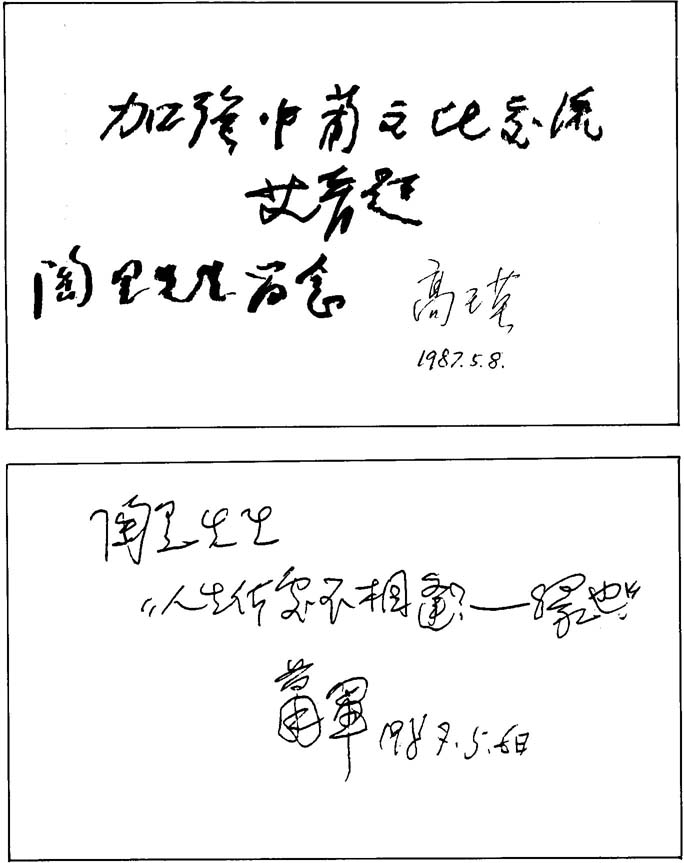 加强中葡文化交流
艾青題
陶里先生留念
高瑛
1987.5.8.
陶里先生
“人生何處不相逢?——緣也!”
蕭軍 1987.5.6日